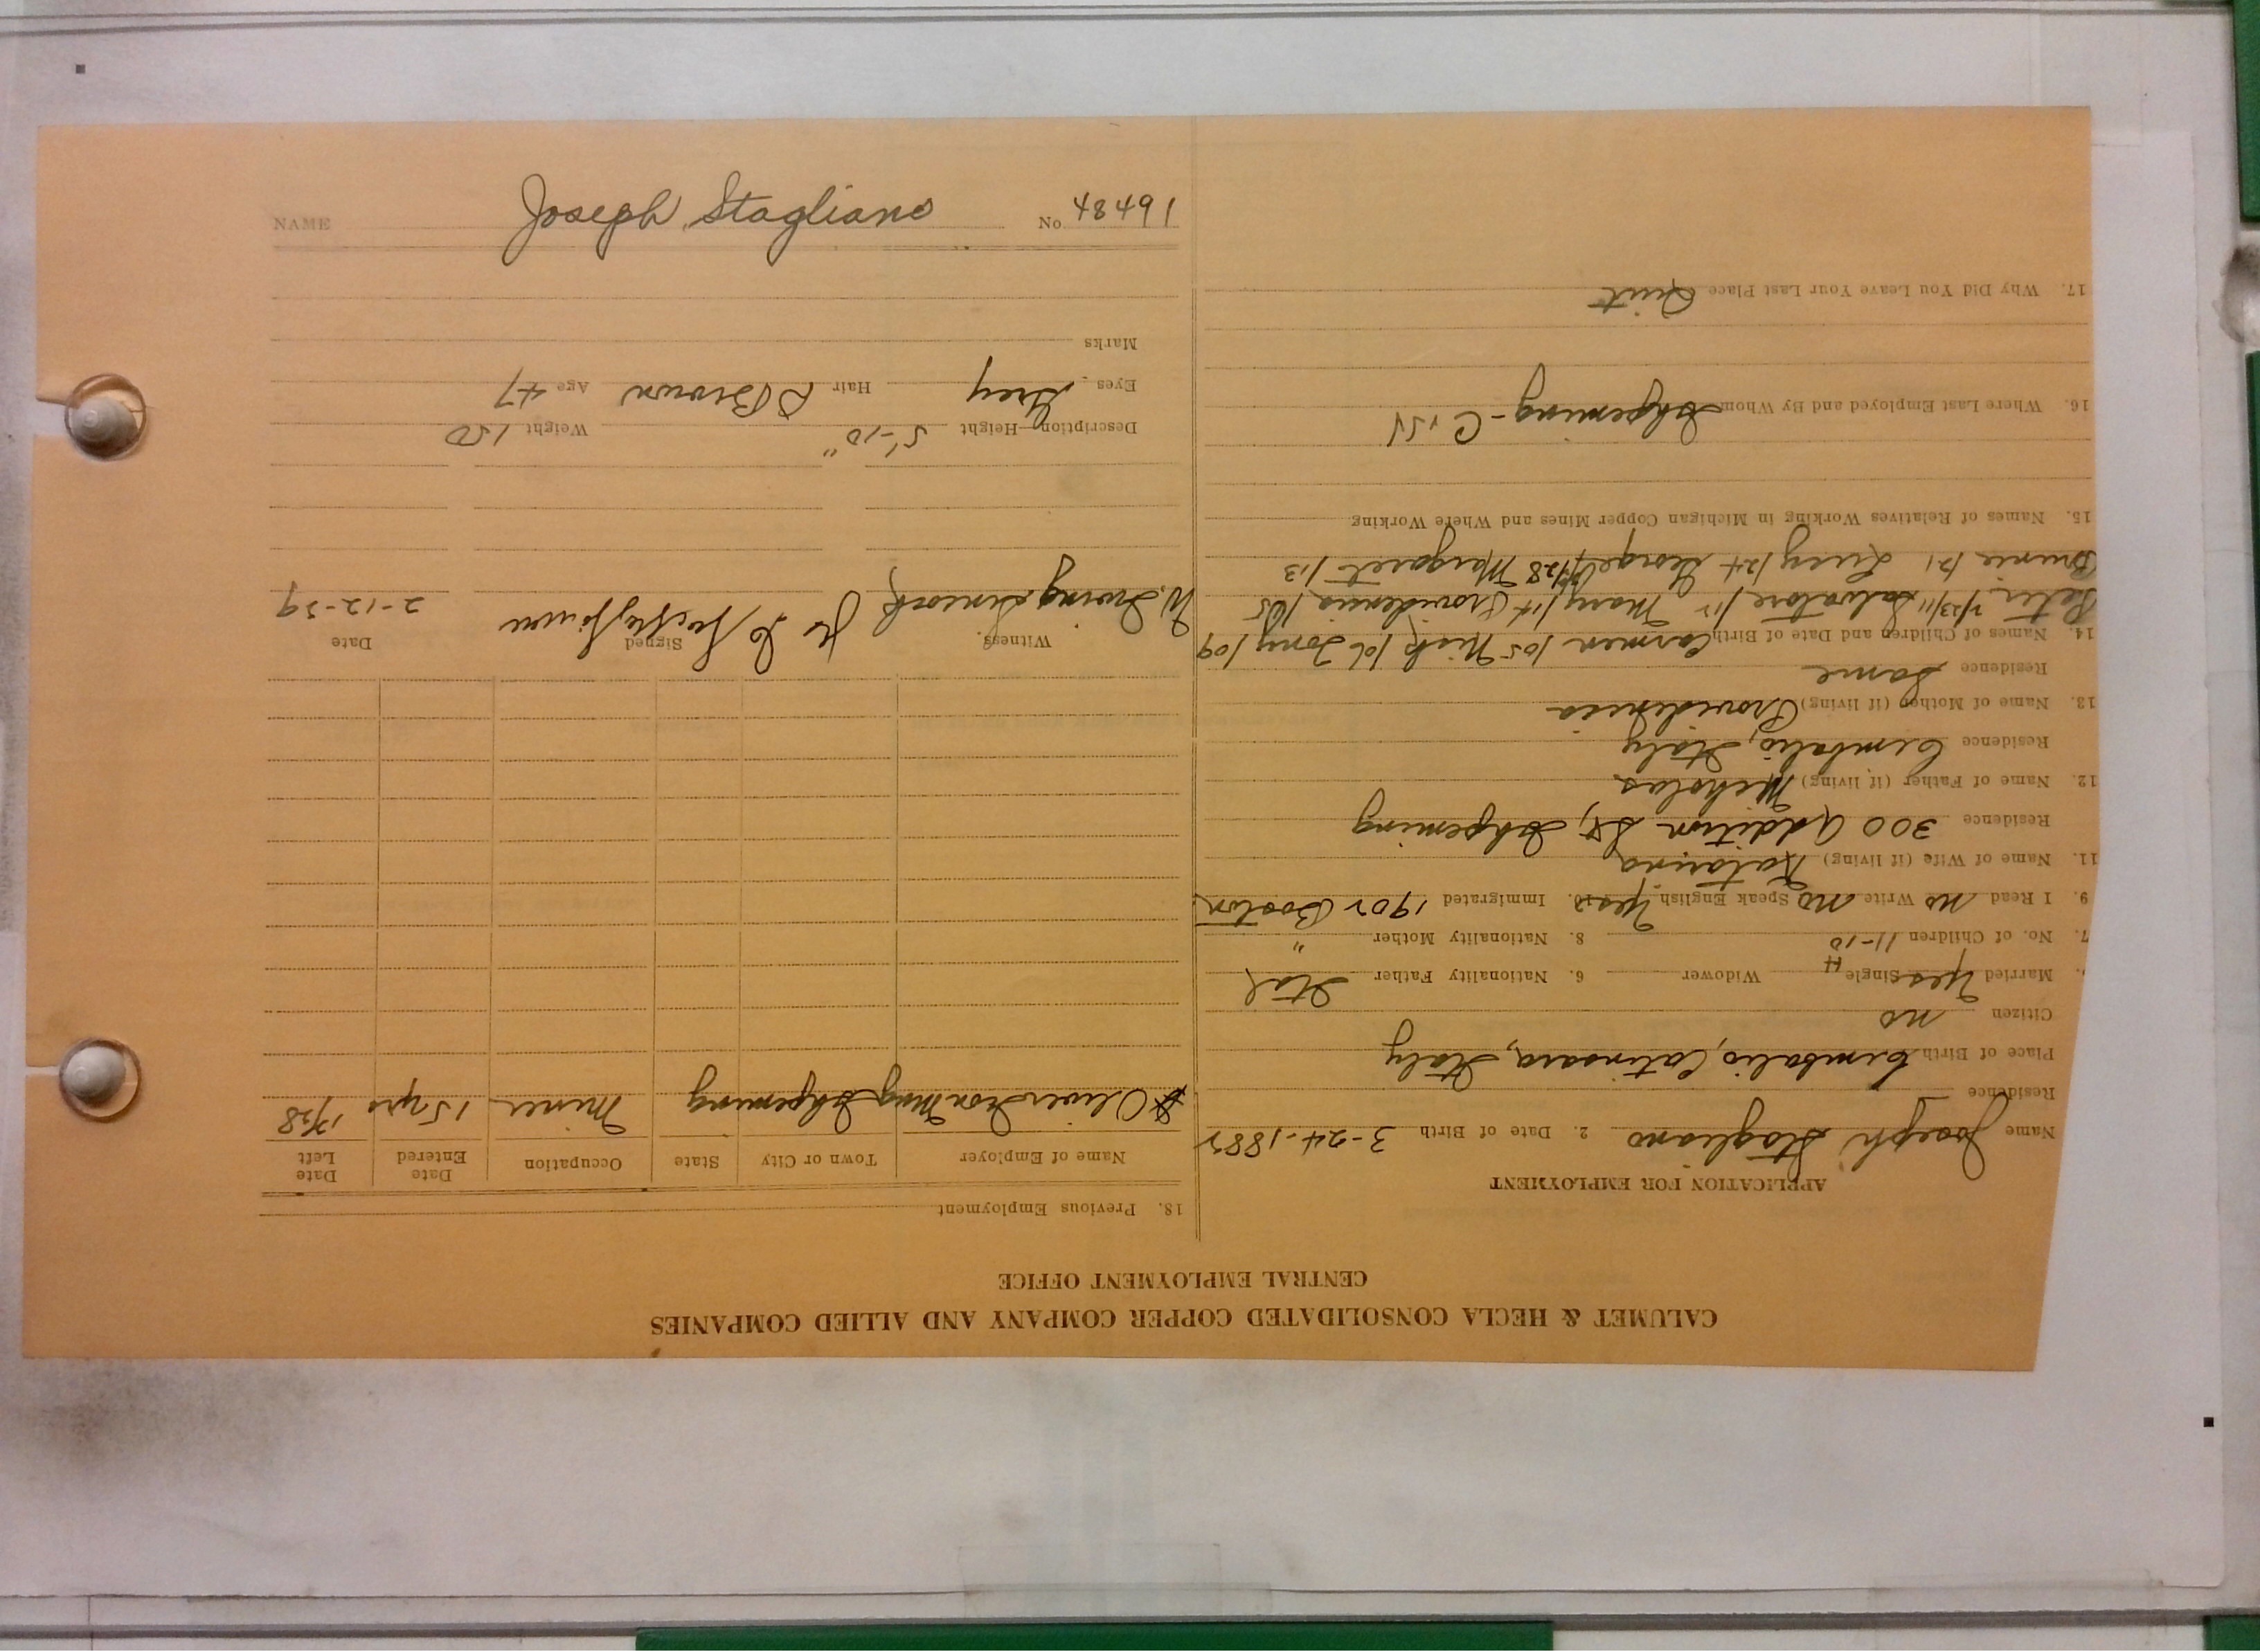 CALUMET & HECLA CONSOLIDATED COPPER COMPANY AND ALLIED COMPANIES
CENTRAL EMPLOYMENT OFFICE
APPLICATION FOR EMPLOYMENT
Name Joseph Stagliano 2. Date of Birth 3-24-1882
Residence
Place of Birth Cimbalio, Catinsara, Italy
Citizen no
Married yes Single Widower 6. Nationality Father Ital
7. No. of Children 11-10 8. Nationality Mother "
9. I Read no Write no Speak English yes 10. Immigrated 1902 Boston
11. Name of Wife (if living) Katarina
Residence 300 Addition St, Ishpeming
12. Name of Father (if living) Nicholas
Residence Cimbalio, Italy
13. Name of Mother (if living) Providencia
Residence Same
14. Names of Children and Date of Birth Carmen /05 Nick /06 Tony /09
Peter 2/23/11 Salvatore /12 Mary /14 Providencia /05
Bunnie /21 Lucy /24 George /28 Margaret /13
15. Names of Relatives Working in Michigan Copper Mines and Where Working
16. Where Last Employed and By Whom Ishpeming-
17. Why Did You Leave Your Last Place Quit
18. Previous Employment
Name of Employer Town or City State Occupation Date Entered Date Left
Oliver Iron Mng Ishpeming Miner 15 yrs 1928
Witness. Signed Date
W. Irving 2-12-29
Description—Height 5'-10" Weight 150
Eyes Grey Hair D Brown Age 47
Marks
NAME Joseph Stagliano No 48491